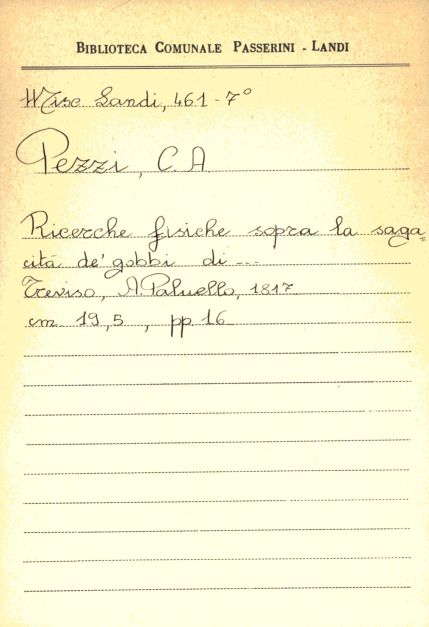 BIBLIOTECA COMUNALE PASSERINI - LANDI
Misc Landi, 461 - 7°
Pezzi, C. A.
Ricerche fisiche sopra la saga=
cità de' gobbi di ---
Treviso, A. Paluello, 1817
cm. 19,5, pp. 16